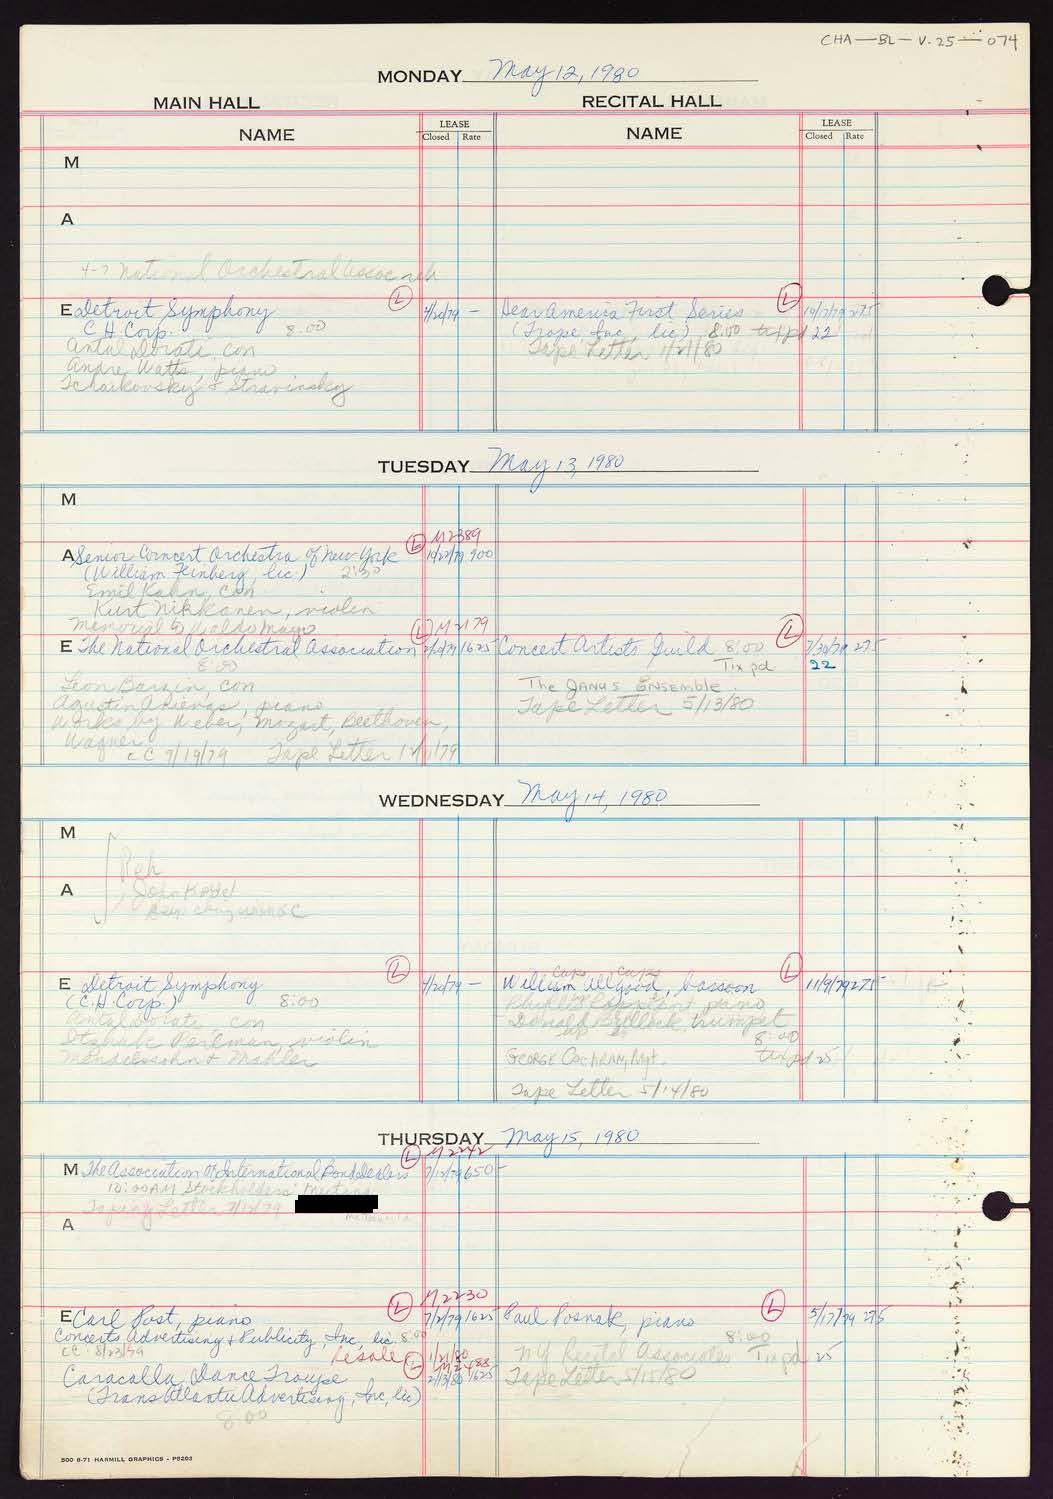 CHA-BL-V.25-074
MONDAY May 12, 1980
MAIN HALL RECITAL HALL
NAME LEASE Closed Rate NAME LEASE Closed Rate
M
A
4-7 National Orchestral Assoc reh
E Detroit Symphony L 4/20/79 -
C H Corp. 8:00
Antal Dorati, con
Andre Watts, piano
Tchaikovsky & Stravinsky
Hear America First Series L 10/2/79 275
(Trope Inc, lic) 8:00 tix pd 22
Tape Letter 1/21/80
TUESDAY May 13, 1980
M
L M2389
A Senior Concert Orchestra of New York 10/22/79 900
(William Feinberg, lic) 2:30
Emil Kahn, con
Kurt Nikkanen, violin
Memorial to Waldo Mayo
L M2179
E The National Orchestral Association 1625
8:00
Leon Barzin, con
Agustin Anievas, piano
Works by Weber, Mozart, Beethoven,
Wagner
CC 9/19/79 Tape Letter
Concert Artists Guild 8:00 L 275
Tix pd 22
The Janus Ensemble
Tape Letter 5/13/80
WEDNESDAY May 14, 1980
M
Reh
A
E Detroit Symphony L 4/20/79 -
(C.H. Corp) 8:00
Antal Dorati, con
Itzhak Perlman, violin
Mendelssohn & Mahler
caps caps
William Allgood, bassoon L 11/9/79 275
piano
Donald Bullock, trumpet
8:00
George Cochran, Mgt. tix pd 25
Tape Letter 5/14/80
THURSDAY May 15, 1980
L M2242
M The Association of International Bond Dealers 7/12/79 650-
10:00 AM Stockholders' Meeting
Taping Letter 7/12/79
A
L M2230
E Carl Post, piano 1625
Concerts Advertising & Publicity, Inc, lic 8:00
CC 8/23/79
Resale L 1/21/80 M2488
Caracalla Dance Troupe 2/13/80 1625
(TransAtlantic Advertising, Inc, lic)
8:00
Paul Posnak, piano L 5/17/79 275
8:00
NY Recital Associates Tix pd 25
Tape Letter 5/15/80
500 6-71 HARMILL GRAPHICS - P5203